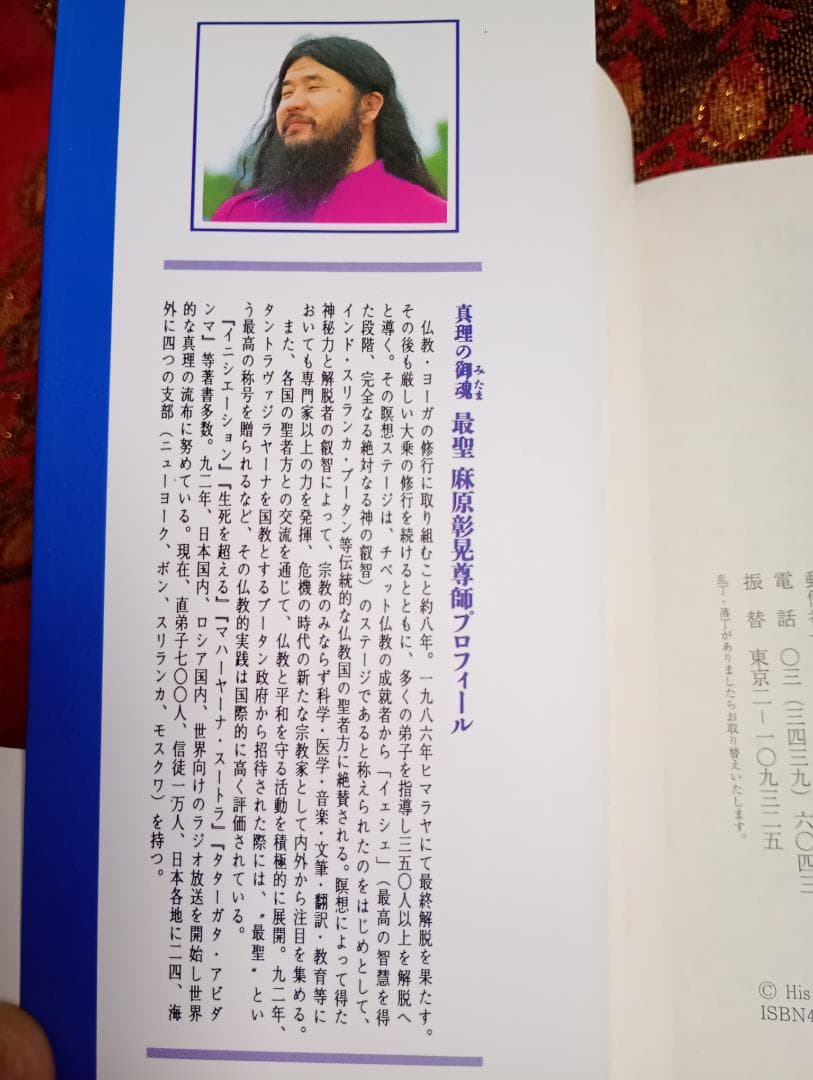 真理の御魂 最聖 麻原彰晃尊師プロフィール
みたま
仏教・ヨーガの修行に取り組むこと約八年。一九八六年ヒマラヤにて最終解脱を果たす。
その後も厳しい大乗の修行を続けるとともに、多くの弟子を指導し三五〇人以上を解脱へ
と導く。その瞑想ステージは、チベット仏教の成就者から「イェシェ」（最高の智慧を得
た段階、完全なる絶対なる神の叡智）のステージであると称えられたのをはじめとして、
インド・スリランカ・ブータン等伝統的な仏教国の聖者方に絶賛される。瞑想によって得た
神秘力と解脱者の叡智によって、宗教のみならず科学・医学・音楽・文筆・翻訳・教育等に
おいても専門家以上の力を発揮、危機の時代の新たな宗教家として内外から注目を集める。
また、各国の聖者方との交流を通じて、仏教と平和を守る活動を積極的に展開。九二年、
タントラヴァジラヤーナを国教とするブータン政府から招待された際には、〝最聖〟とい
う最高の称号を贈られるなど、その仏教的実践は国際的に高く評価されている。
『イニシエーション』『生死を超える』『マハーヤーナ・スートラ』『タターガタ・アビダ
ンマ』等著書多数。九二年、日本国内、ロシア国内、世界向けのラジオ放送を開始し世界
的な真理の流布に努めている。現在、直弟子七〇〇人、信徒一万人、日本各地に二四、海
外に四つの支部（ニューヨーク、ボン、スリランカ、モスクワ）を持つ。
電話 〇三（三四三九）六〇四三
振替 東京二―一〇九三二五
乱丁・落丁がありましたらお取り替えいたします。
© His
ISBN4